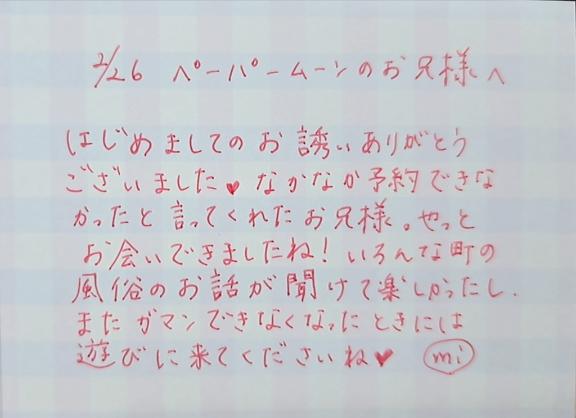 2/26 ペーパームーンのお兄様へ
はじめましてのお誘いありがとう
ございました♥なかなか予約できな
かったと言ってくれたお兄様。やっと
お会いできましたね!いろんな町の
風俗のお話が聞けて楽しかったし、
またガマンできなくなったときには
遊びに来てくださいね♥ mi